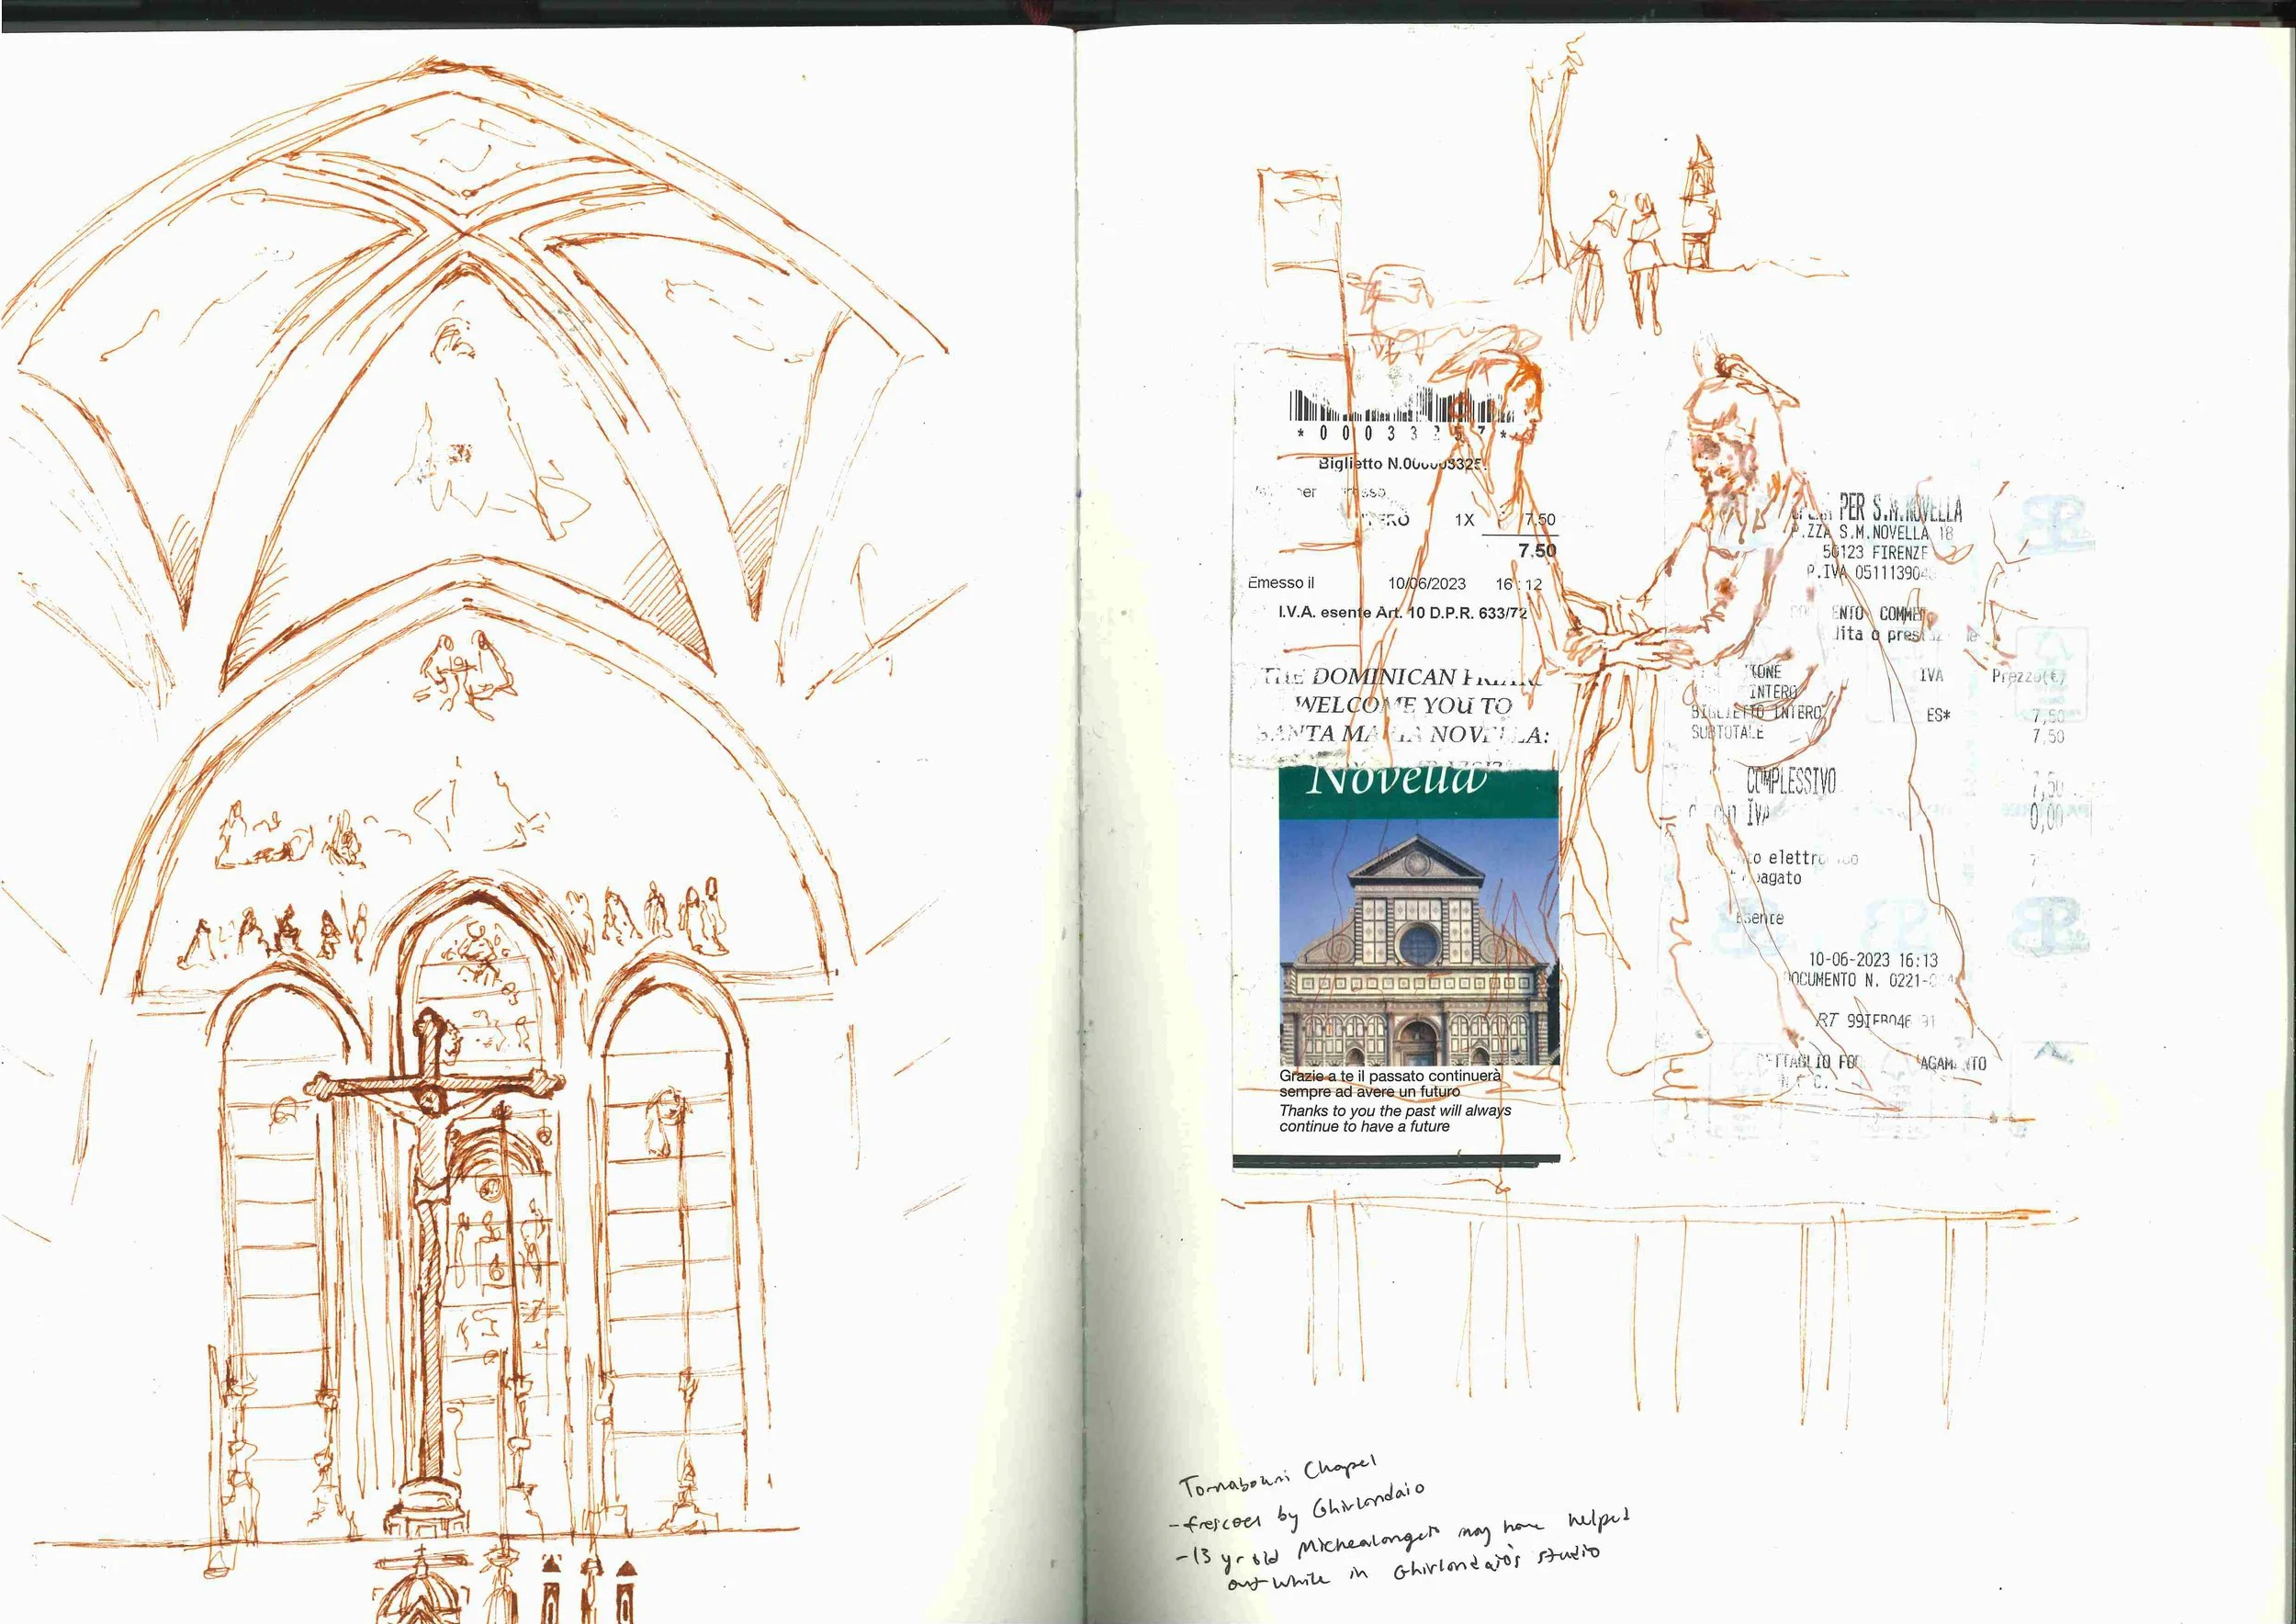 * 0 0 0 3 3 2 5 7 *
Biglietto N.
1X 7.50
7.50
Emesso il 10/06/2023 16:12
I.V.A. esente Art. 10 D.P.R. 633/72
THE DOMINICAN
WELCOME YOU TO
SANTA MARIA NOVELLA:
Novella
Grazie a te il passato continuerà
sempre ad avere un futuro
Thanks to you the past will always
continue to have a future
PER S.M.NOVELLA
P.ZZA S.M.NOVELLA 18
50123 FIRENZE
P.IVA
IVA Prezzo(€)
INTERO
BIGLIETTO INTERO ES* 7,50
SUBTOTALE 7,50
COMPLESSIVO 7,50
IVA 0,00
pagato
Esente
10-06-2023 16:13
DOCUMENTO N.
RT
Tornabouni Chapel
- frescoes by Ghirlondaio
- 13 yr old Michealangelo may have helped
out while in Ghirlondaio's studio